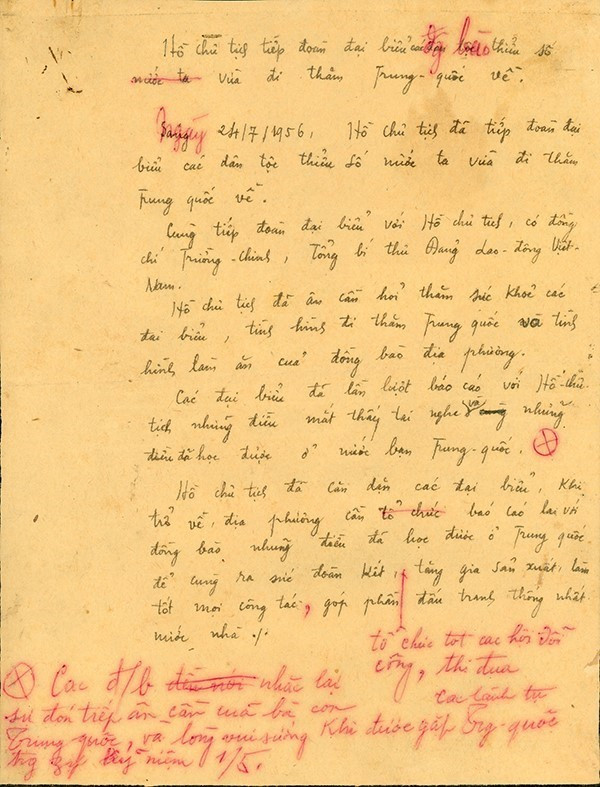 Hồ chủ tịch tiếp đoàn đại biểu các dân tộc thiểu số
đg bào
nước ta vừa đi thăm Trung-quốc về.
Ngày 24/7/1956, Hồ chủ tịch đã tiếp đoàn đại
biểu các dân tộc thiểu số nước ta vừa đi thăm
Trung quốc về.
Cùng tiếp đoàn đại biểu với Hồ chủ tịch, có đồng
chí Trường-Chinh, Tổng bí thư Đảng Lao-động Việt-
Nam.
Hồ chủ tịch đã ân cần hỏi thăm sức khoẻ các
đại biểu, tình hình đi thăm Trung quốc và tình
hình làm ăn của đồng bào địa phương.
Các đại biểu đã lần lượt báo cáo với Hồ-chủ-
tịch những điều mắt thấy tai nghe và những
điều đã học được ở nước bạn Trung-quốc.
Hồ chủ tịch đã căn dặn các đại biểu, khi
trở về, địa phương cần tổ chức báo cáo lại với
đồng bào những điều đã học được ở Trung quốc
để cùng ra sức đoàn kết, tăng gia sản xuất, làm
tốt mọi công tác, góp phần đấu tranh thống nhất
nước nhà ./.
tổ chức tốt các hội đổi
công, thi đua
Các đ/b đều nói nhắc lại
sự đón tiếp ân cần của bà con
Trung quốc, và lòng vui sướng khi được gặp
các lãnh tụ
Trg-quốc
trg kỷ niệm 1/5.